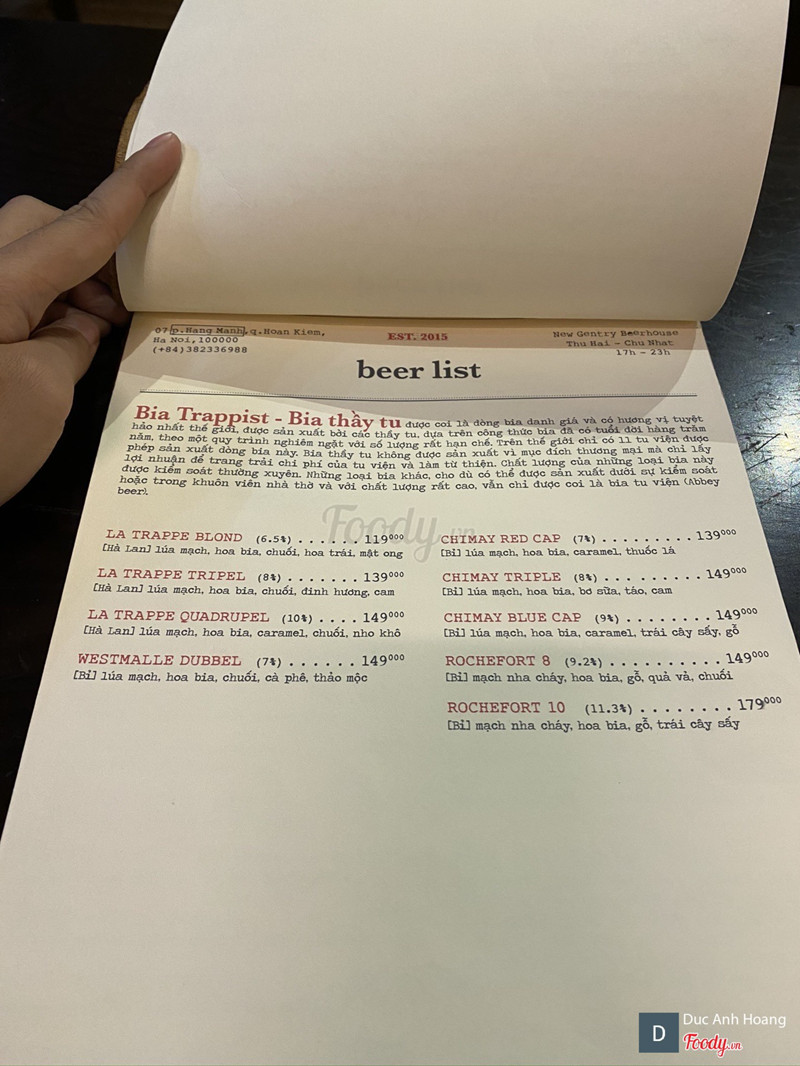 07 p.Hang Manh, q.Hoan Kiem,
Ha Noi, 100000
(+84)382336988
EST. 2015
New Gentry Beerhouse
Thu Hai - Chu Nhat
17h - 23h
beer list
Bia Trappist - Bia thầy tu được coi là dòng bia danh giá và có hương vị tuyệt
hảo nhất thế giới, được sản xuất bởi các thầy tu, dựa trên công thức bia đã có tuổi đời hàng trăm
năm, theo một quy trình nghiêm ngặt với số lượng rất hạn chế. Trên thế giới chỉ có 11 tu viện được
phép sản xuất dòng bia này. Bia thầy tu không được sản xuất vì mục đích thương mại mà chỉ lấy
lợi nhuận để trang trải chi phí của tu viện và làm từ thiện. Chất lượng của những loại bia này
được kiểm soát thường xuyên. Những loại bia khác, cho dù có thể được sản xuất dưới sự kiểm soát
hoặc trong khuôn viên nhà thờ và với chất lượng rất cao, vẫn chỉ được coi là bia tu viện (Abbey
beer).
LA TRAPPE BLOND (6.5%) . . . . . . 119000
[Hà Lan] lúa mạch, hoa bia, chuối, hoa trái, mật ong
LA TRAPPE TRIPEL (8%) . . . . . . . 139000
[Hà Lan] lúa mạch, hoa bia, chuối, đinh hương, cam
LA TRAPPE QUADRUPEL (10%) . . . . 149000
[Hà Lan] lúa mạch, hoa bia, caramel, chuối, nho khô
WESTMALLE DUBBEL (7%) . . . . . . 149000
[Bỉ] lúa mạch, hoa bia, chuối, cà phê, thảo mộc
CHIMAY RED CAP (7%) . . . . . . . . . 139000
[Bỉ] lúa mạch, hoa bia, caramel, thuốc lá
CHIMAY TRIPLE (8%) . . . . . . . . . 149000
[Bỉ] lúa mạch, hoa bia, bơ sữa, táo, cam
CHIMAY BLUE CAP (9%) . . . . . . . . 149000
[Bỉ] lúa mạch, hoa bia, caramel, trái cây sấy, gỗ
ROCHEFORT 8 (9.2%) . . . . . . . . . . 149000
[Bỉ] mạch nha cháy, hoa bia, gỗ, quả vả, chuối
ROCHEFORT 10 (11.3%) . . . . . . . . 179000
[Bỉ] mạch nha cháy, hoa bia, gỗ, trái cây sấy
Foody.vn
D
Duc Anh Hoang
Foody.vn